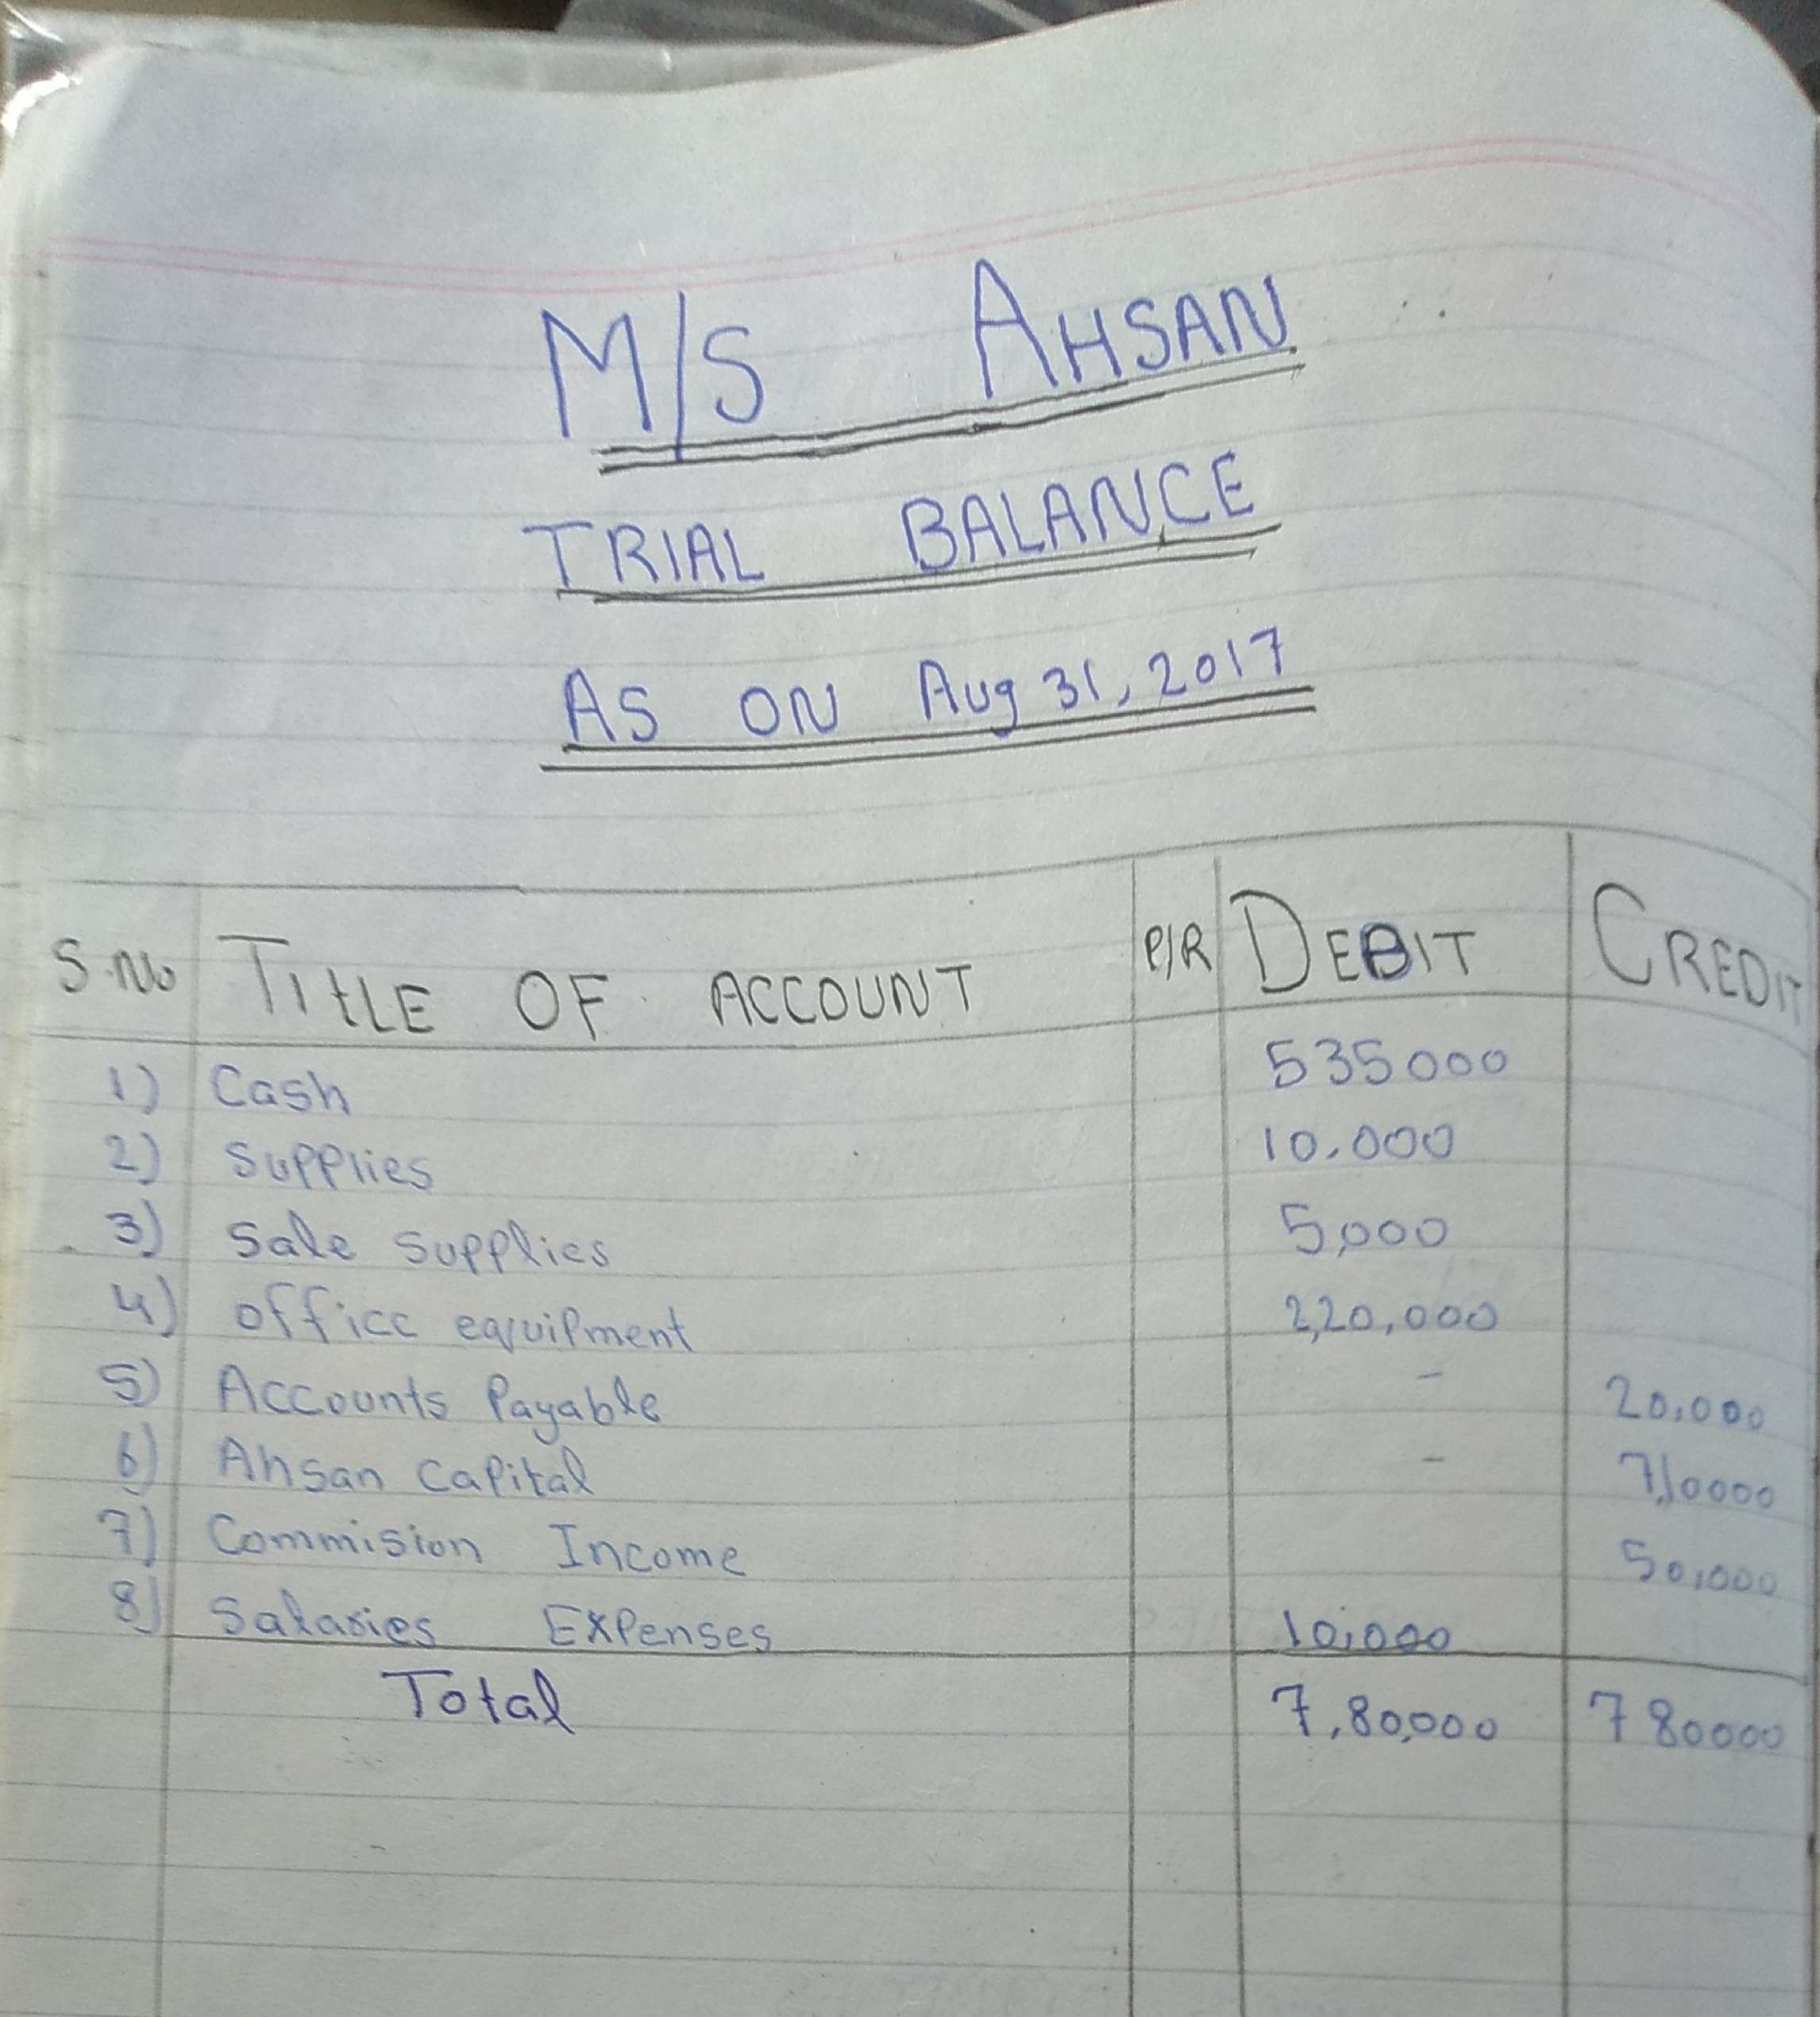 M/S AHSAN
TRIAL BALANCE
AS ON Aug 31, 2017
S.No TITLE OF ACCOUNT P/R DEBIT CREDIT
1) Cash 535000
2) Supplies 10,000
3) Sale Supplies 5,000
4) office equipment 2,20,000
5) Accounts Payable - 20,000
6) Ahsan Capital - 7,10000
7) Commision Income 50,000
8) Salaries Expenses 10,000
Total 7,80,000 780000